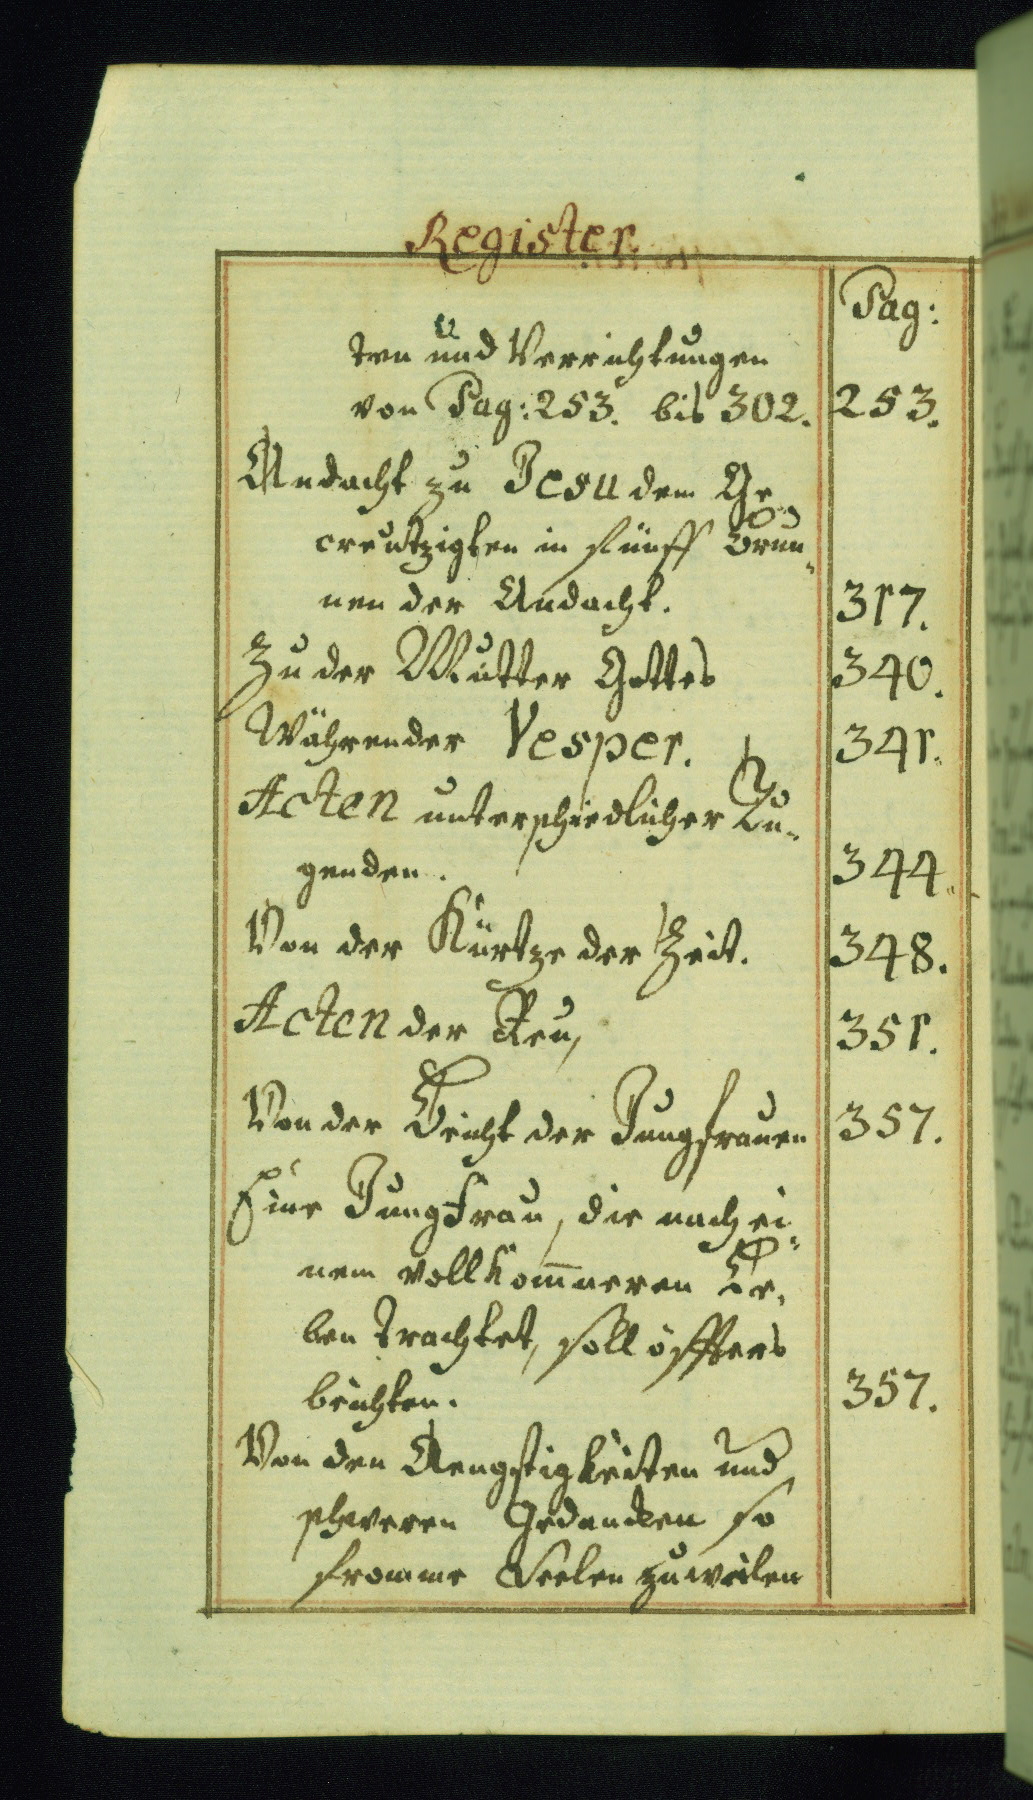 Register
Pag:
ten und Verrichtungen
von Pag: 253. bis 302. 253.
Andacht zu Jesu dem Ge-
creutzigten in fünff Brun-
nen der Andacht. 317.
Zu der Mutter Gottes 340.
Währender Vesper. 341.
Acten unterschiedlicher Tu-
genden. 344.
Von der Kürtze der Zeit. 348.
Acten der Reu, 351.
Von der Beicht der Jungfrauen 357.
Eine Jungfrau, die nach ei-
nem vollkom̅neren Le-
ben trachtet, soll öffters
beichten. 357.
Von den Aengstigkeiten und
schweren Gedancken so
fromme Seelen zuweilen